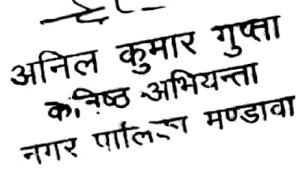 अनिल कुमार गुप्ता
कनिष्ठ अभियन्ता
नगर पालिका मण्डावा